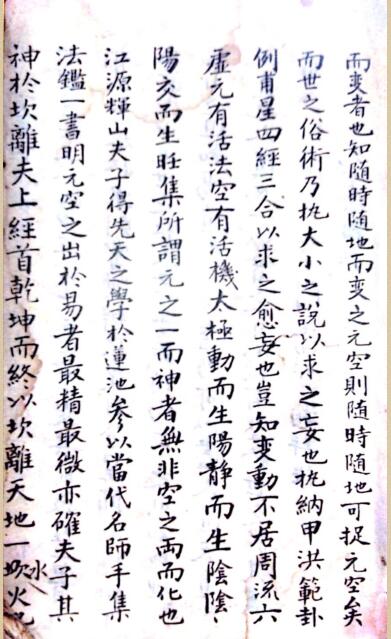 而变者也知隨時隨地而变之元空則隨時隨地可捉元空矣
而世之俗術乃执大小之說以求之妄也执納甲洪範卦
例甫星四經三合以求之愈妄也豈知变動不居周流六
虛元有活法空有活機太極動而生陽靜而生陰陰、
陽交而生旺集所謂元之一而神者無非空之両而化也
江源輝山夫子得先天之學於蓮池参以當代名師手集
法鑑一書明元空之出於易者最精最微亦確夫子其
神於坎離夫上經首乾坤而終以坎離天地一水火